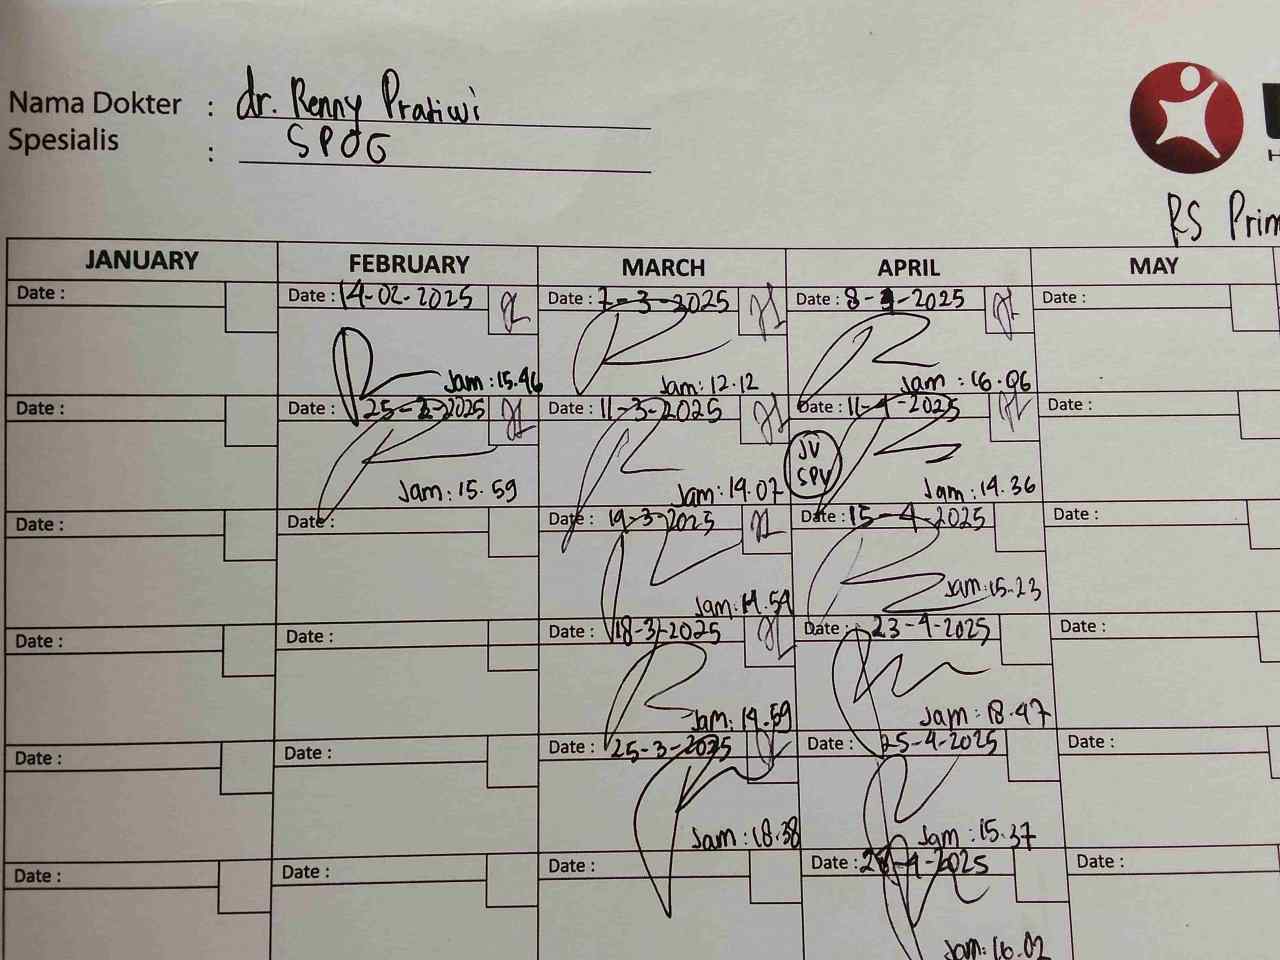 Nama Dokter : dr. Renny Pratiwi
Spesialis : SPOG
RS Prim
JANUARY FEBRUARY MARCH APRIL MAY
Date : Date : 14-02-2025 Date : 7-3-2025 Date : 8-4-2025 Date :
Jam : 15.46 Jam : 12.12 Jam : 16.06
Date : Date : 25-2-2025 Date : 11-3-2025 Date : 11-4-2025 Date :
JV
SPV
Jam : 15.59 Jam : 19.07 Jam : 14.36
Date : Date : Date : 14-3-2025 Date : 15-4-2025 Date :
Jam : 14.54 Jam : 15.23
Date : Date : Date : 18-3-2025 Date : 23-4-2025 Date :
Jam : 14.59 Jam : 18.47
Date : Date : Date : 25-3-2025 Date : 25-4-2025 Date :
Jam : 18.38 Jam : 15.37
Date : Date : Date : Date : -4-2025 Date :
Jam : 16.02